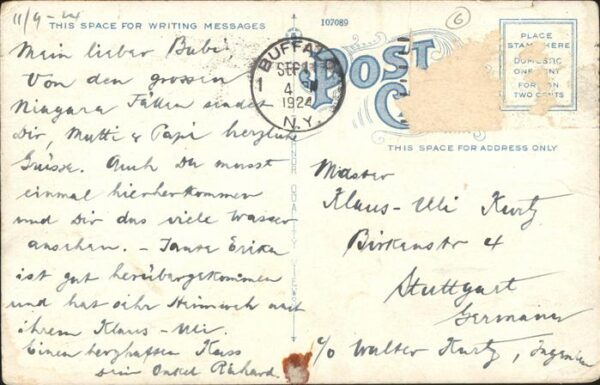 11/9-24
THIS SPACE FOR WRITING MESSAGES
107089
6
Mein lieber Bubi
Von den grossen
Niagara Fällen sendet
Dir, Mutti & Papi herzlich
Grüsse. Auch Du musst
einmal hierherkommen
und Dir das viele Wasser
ansehen. - Tante Erika
ist gut herübergekommen
und hat sehr Heimweh auch
ihrem Klaus-Uli.
Einen herzhaften Kuss
Dein Onkel Richard.
BUFFALO
SEP 11
4 PM
1924
N.Y.
1
POST
C
PLACE
STAMP HERE
DOMESTIC
ONE CENT
FOREIGN
TWO CENTS
THIS SPACE FOR ADDRESS ONLY
Master
Klaus-Uli Kurtz
Birkenstr 4
Stuttgart
Germany
c/o Walter Kurtz, Ingenieur